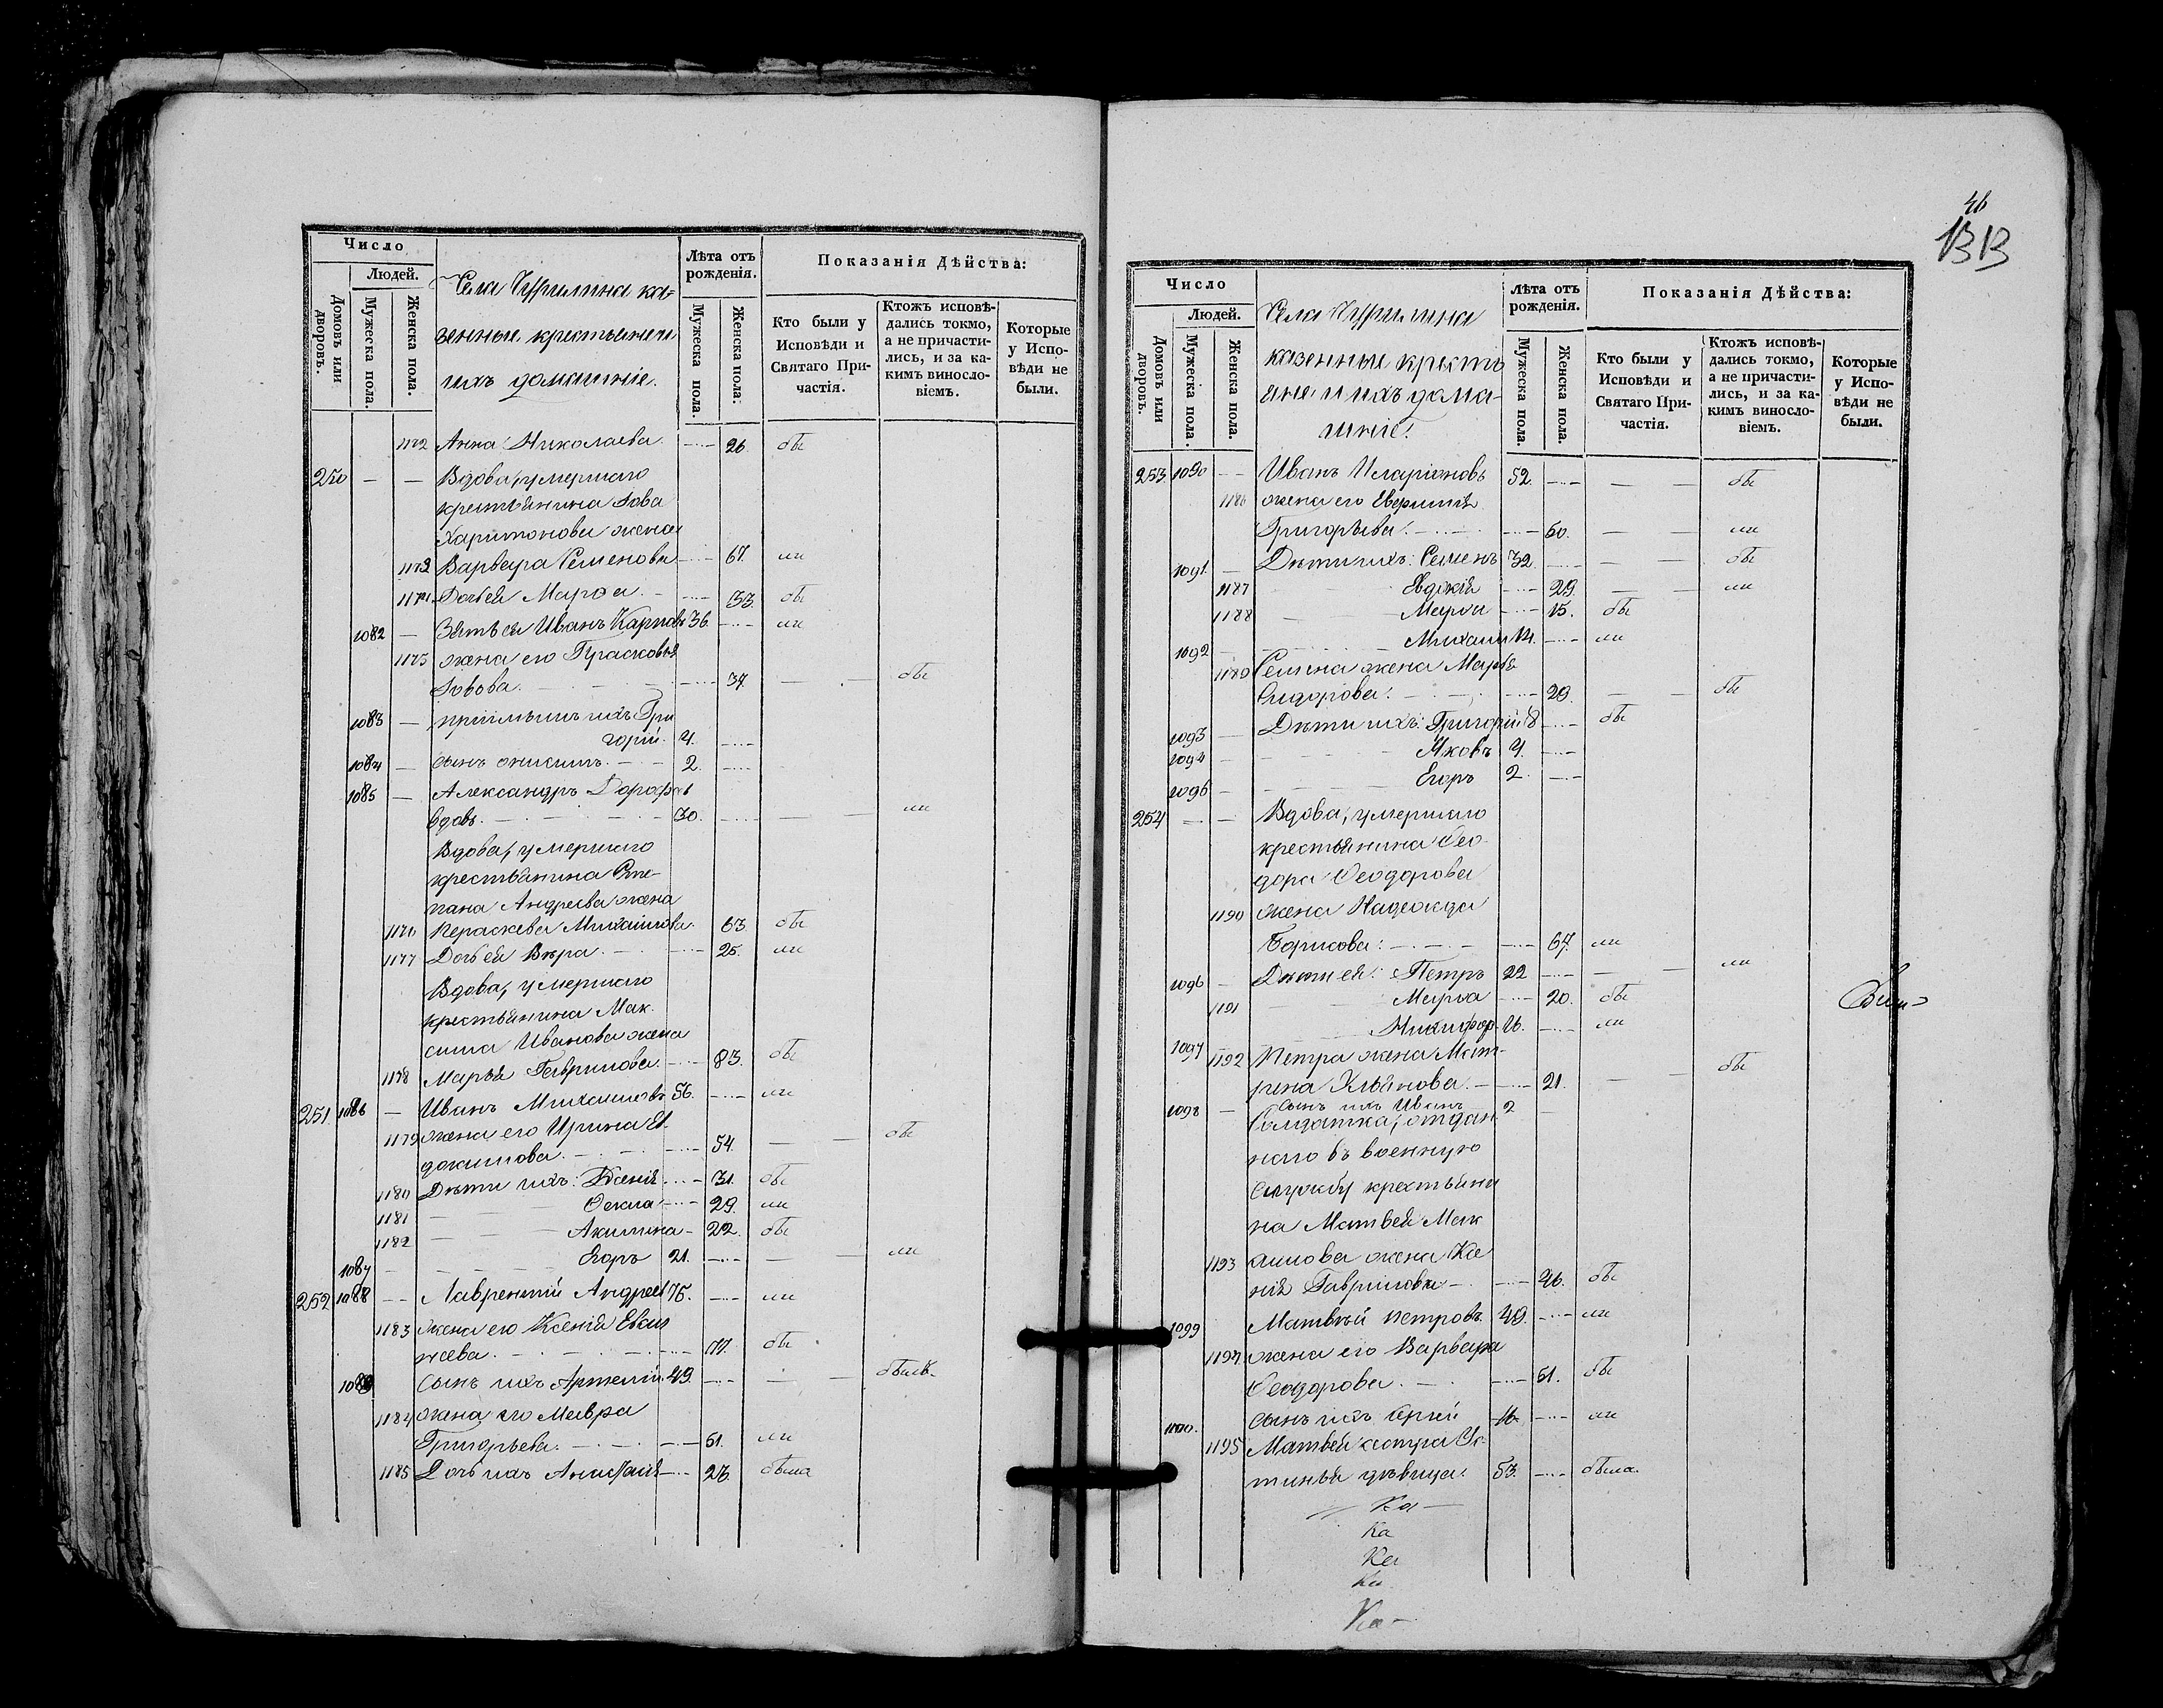 Число
Людей.
Домовъ или дворовъ.
Мужеска пола.
Женска пола.
Села Чурилина ка-
зенные крестьяне и
ихъ домашніе.
Лѣта отъ рожденія.
Мужеска пола.
Женска пола.
Показанія Дѣйства:
Кто были у Исповѣди и Святаго Причастія.
Ктожъ исповѣдались токмо, а не причастились, и за какимъ винословіемъ.
Которые у Исповѣди не были.
1172 Анна Николаева 26. бы
250 — — Вдова, умершаго
крестьянина Іова
Харитонова жена
1173 Варвара Семенова 67. ли
1174 Дочь ея Марѳа 33. бы
1082 — Зять ея Иванъ Карповъ 36. ли
1175 жена его Прасковья
Іовова. 34. бы
1083 — пріимышъ ихъ Гри
горій. 4.
1084 — сынъ Онисимъ. 2.
1085 — Александръ Дороѳеевъ
вдовъ. 30. ли
Вдова, умершаго
крестьянина Сте-
пана Андреева жена
1176 Параскева Михайлова. 63 бы
1177 Дочь ея Вѣра. 25. ли
Вдова, умершаго
крестьянина Мак
сима Иванова жена
1178 Марья Гаврилова. 83. бы
251 1086 — Иванъ Михайловъ 56. ли
1179 жена его Ирина Ев
докимова. 54. бы
1180 Дѣти ихъ: Ксенія 31. бы
1181 Ѳекла 29. ли
1182 Акилина 22. бы
1087 Егоръ 21. ли
252 1088 Лаврентій Андреев 75. ли
1183 жена его Ксенія Евси
гнеева. 77. бы
1089 Сынъ ихъ Артемій 49. былъ
1184 жена его Мавра
Григорьева. 51. ли
1185 Дочь ихъ Анастасія 23. была
46
1313
Число
Людей.
Домовъ или дворовъ.
Мужеска пола.
Женска пола.
Села Чурилина
казенные кресть
яне и ихъ дома-
шніе.
Лѣта отъ рожденія.
Мужеска пола.
Женска пола.
Показанія Дѣйства:
Кто были у Исповѣди и Святаго Причастія.
Ктожъ исповѣдались токмо, а не причастились, и за какимъ винословіемъ.
Которые у Исповѣди не были.
253 1090 Иванъ Иларіоновъ 52. бы
1186 жена его Евфимія
Григорьева. 50. ли
1091 Дѣти ихъ: Семенъ 32. бы
1187 Евдокія 29. ли
1188 Марѳа 15. бы
1092 Михаилъ 14. ли
1189 Семена жена Марья
Сидорова. 29. бы
1093 Дѣти ихъ: Григорій 8 бы
1094 Яковъ 4.
1095 Егоръ 2.
254 — — Вдова, умершаго
крестьянина Ѳео-
дора Ѳеодорова
1190 жена Надежда
Борисова. 64. ли
1096 Дѣти ея: Петръ 22 ли
1191 Марѳа 20. бы
1097 Никифоръ 16. ли
1192 Петра жена Мат-
рена Ульянова. 21. бы
1098 — Сынъ ихъ Иванъ 2
Солдатка, отдан
наго въ военную
службу крестьяни
на Матвея Мак
1193 симова жена Ксе
нія Гаврилова 46. бы
1099 Матвѣй Петровъ. 49. ли
1194 жена его Варвара
Ѳеодорова. 51. бы
1100. сынъ ихъ 16. ли
1195 Матвея сестра Ус
тинья дѣвица. 53. была.
Ка
Ка
Ка
Ка
Ка